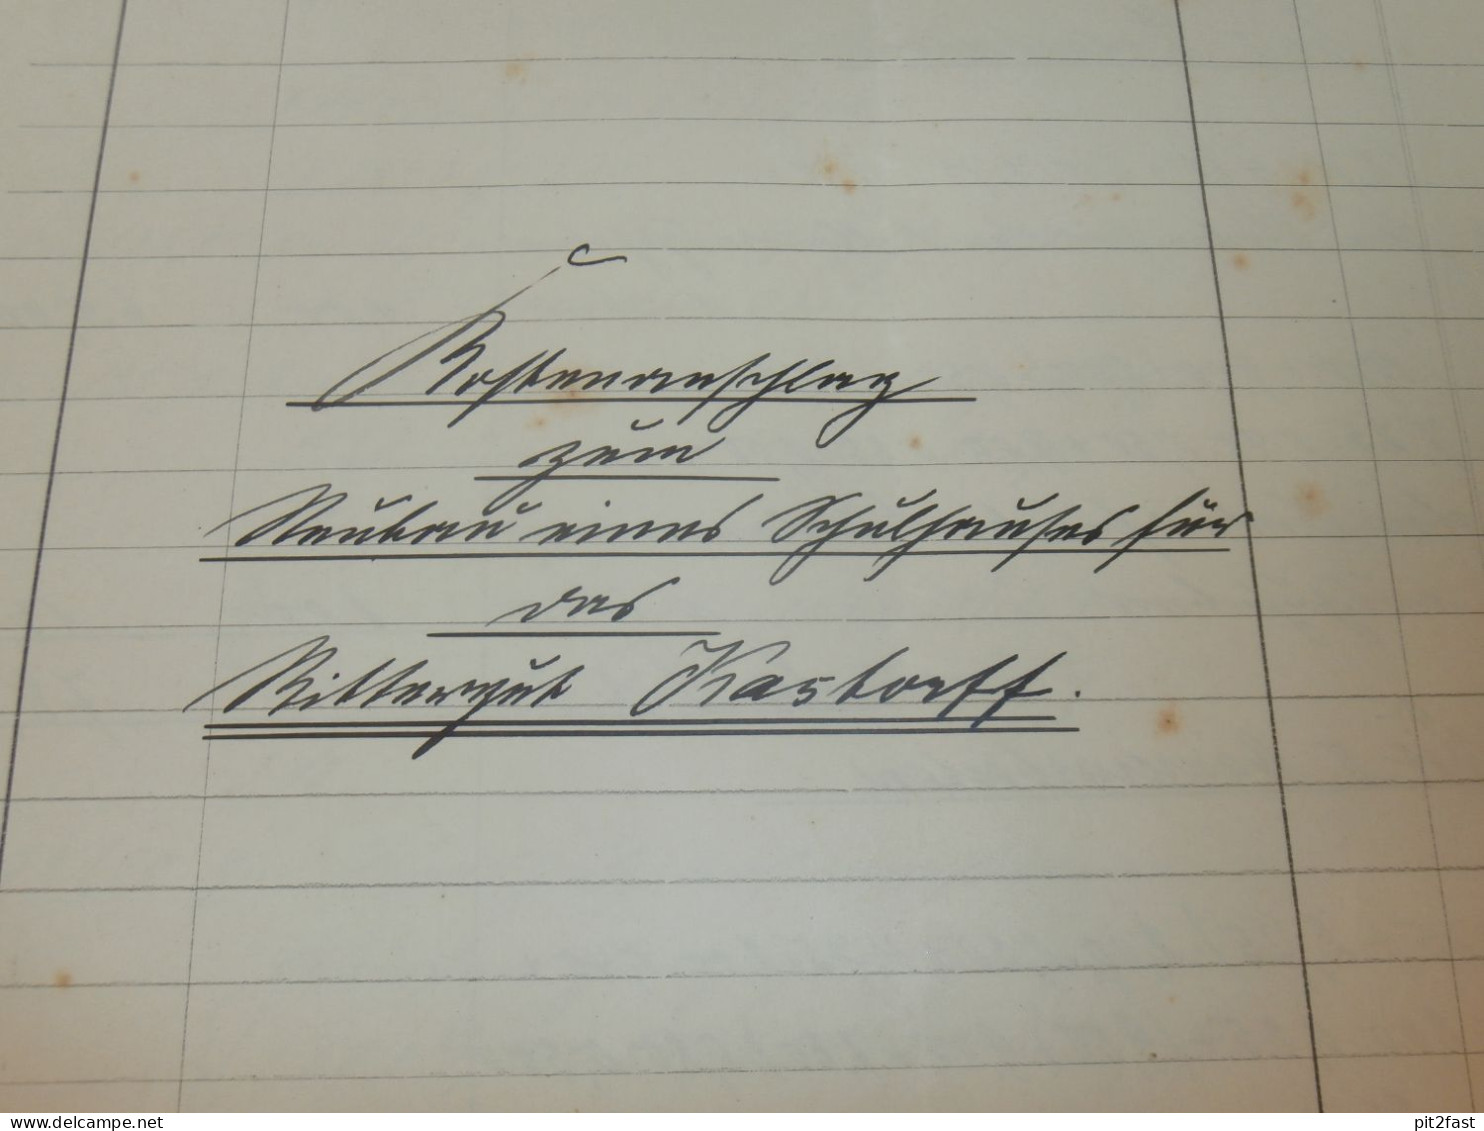 Kostenanschlag
zum
Neubau eines Schulhauses für
das
Rittergut Kastorff.
www.delcampe.net
pit2fast